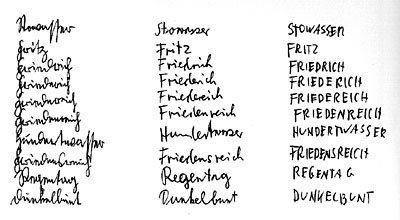 Stowasser Stowasser STOWASSER
Fritz Fritz FRITZ
Friedrich Friedrich FRIEDRICH
Friederich Friederich FRIEDERICH
Friedereich Friedereich FRIEDEREICH
Friedenreich Friedenreich FRIEDENREICH
Hundertwasser Hundertwasser HUNDERTWASSER
Friedensreich Friedensreich FRIEDENSREICH
Regentag Regentag REGENTAG
Dunkelbunt Dunkelbunt DUNKELBUNT